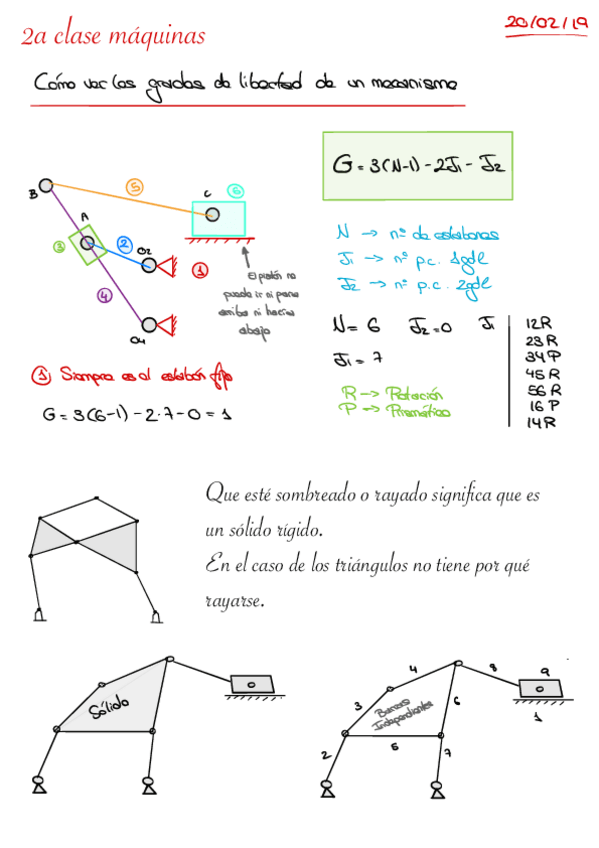 2a clase máquinas
20/02/19
Cómo ver los grados de libertad de un mecanismo
G = 3(N-1) - 2J1 - J2
N → nº de eslabones
J1 → nº p.c. 1gdl
J2 → nº p.c. 2gdl
B
5
C
6
A
3
2
O2
1
4
O4
El pistón no
puede ir ni para
arriba ni hacia
abajo
N = 6 J2 = 0 J1
J1 = 7
12R
23R
34P
45R
56R
16P
14R
R → Rotación
P → Prismático
1 Siempre es el eslabón fijo
G = 3(6-1) - 2·7 - 0 = 1
Que esté sombreado o rayado significa que es
un sólido rígido.
En el caso de los triángulos no tiene por qué
rayarse.
Sólido
4
8
9
3
Barras
Independientes
6
1
2
5
7